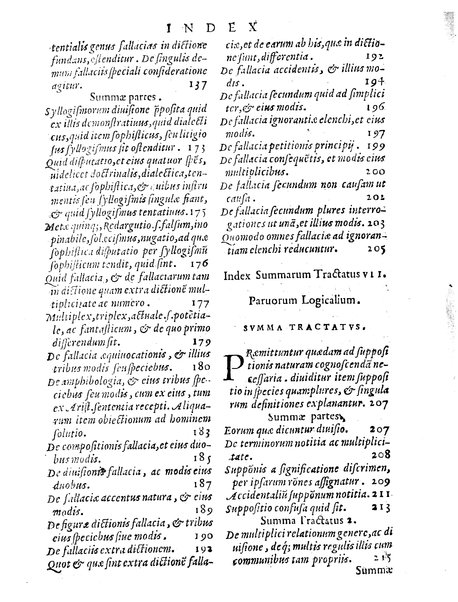 INDEX
tentialis genus fallacias in dictione
fundans, ostenditur. De singulis de
mum fallaciis speciali consideratione
agitur. 137
Summæ partes.
Syllogismorum diuisione p̄posita quid
ex illis demonstratiuus, quid dialecti
cus, quid item sophisticus, seu litigio
sus syllogismus sit ostenditur. 173
Quid disputatio, et eius quatuor sp̄es,
uidelicet doctrinalis, dialectica, ten-
tatiua, ac sophistica, & quibus instru
mentis seu syllogismis singulæ fiant,
& quid syllogismus tentatiuus. 175
Metæ quinq;, Redargutio.s.falsum, ino
pinabile, solœcismus, nugatio, ad quæ
sophistica disputatio per syllogismū
sophisticum tendit, quid sint. 176
Quid fallacia, & de fallaciarum tam
in dictione quam extra dictionē mul
tiplicitate ac numero. 177
Multiplex, triplex, actuale.s.potētia-
le, ac fantasticum, & de quo primo
differendum sit. 179
De fallacia æquiuocationis, & illius
tribus modis seu speciebus. 180
De amphibologia, & eius tribus spe-
ciebus seu modis, cum ex eius, tum
ex Arist.sententia recepti. Aliqua-
rum item obiectionum ad hominem
solutio. 183
De compositionis fallacia, et eius duo-
bus modis. 185
De diuisionis fallacia, ac modis eius
duobus. 187
De fallaciæ accentus natura, & eius
modis. 189
De figuræ dictionis fallacia, & tribus
eius speciebus siue modis. 190
De fallaciis extra dictionem. 192
Quot & quæ sint extra dictionē falla-
ciæ, et de earum ab his, quæ in dictio
ne sunt, differentia. 192
De fallacia accidentis, & illius mo-
dis. 194
De fallacia secundum quid ad simplici
ter, & eius modis. 196
De fallacia ignorantiæ elenchi, et eius
modis. 197
De fallacia petitionis principij. 199
De fallacia consequētis, et modis eius
multiplicibus. 200
De fallacia secundum non causam ut
causa. 202
De fallacia secundum plures interro-
gationes ut unā, et illius modis. 203
Quomodo omnes fallaciæ ad ignoran-
tiam elenchi reducuntur. 205
Index Summarum Tractatus VII.
Paruorum Logicalium.
SUMMA TRACTATVS.
PRæmittuntur quædam ad supposi
tionis naturam cognoscendā ne-
cessaria. diuiditur item suppositio
in species quamplures, & singula
rum definitiones explanantur. 207
Summæ partes,
Eorum quæ dicuntur diuisio. 207
De terminorum notitia ac multiplici-
tate. 208
Supp̄onis a significatione discrimen,
per ipsarum rōnes assignatur. 209
Accidentaliū supp̄onum notitia. 211
Suppositio confusa quid sit. 213
Summa Tractatus 2.
De multiplici relationum genere, ac di
uisione, de q; multis regulis illis cum
communibus tam propriis. 215
Summæ